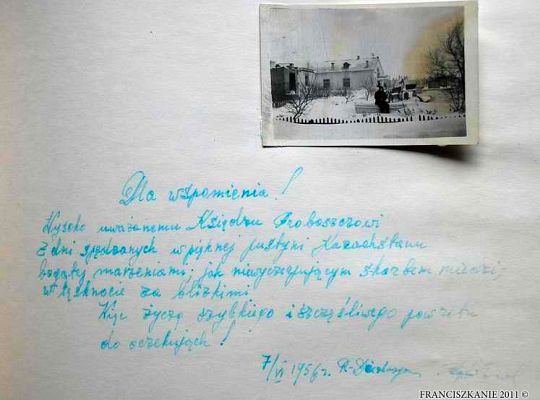 Dla wspomnienia!
Wysoko uważanemu Księdzu Proboszczowi
z dni spędzonych w pięknej pustyni Kazachstanu
bogatej marzeniami, jak niewyczerpującym skarbem miedzi,
w tęsknocie za bliźkimi.
Więc życzę szybkiego i szczęśliwego powrotu
do oczekujących!
7/VI 1956 r.
FRANCISZKANIE 2011 ©